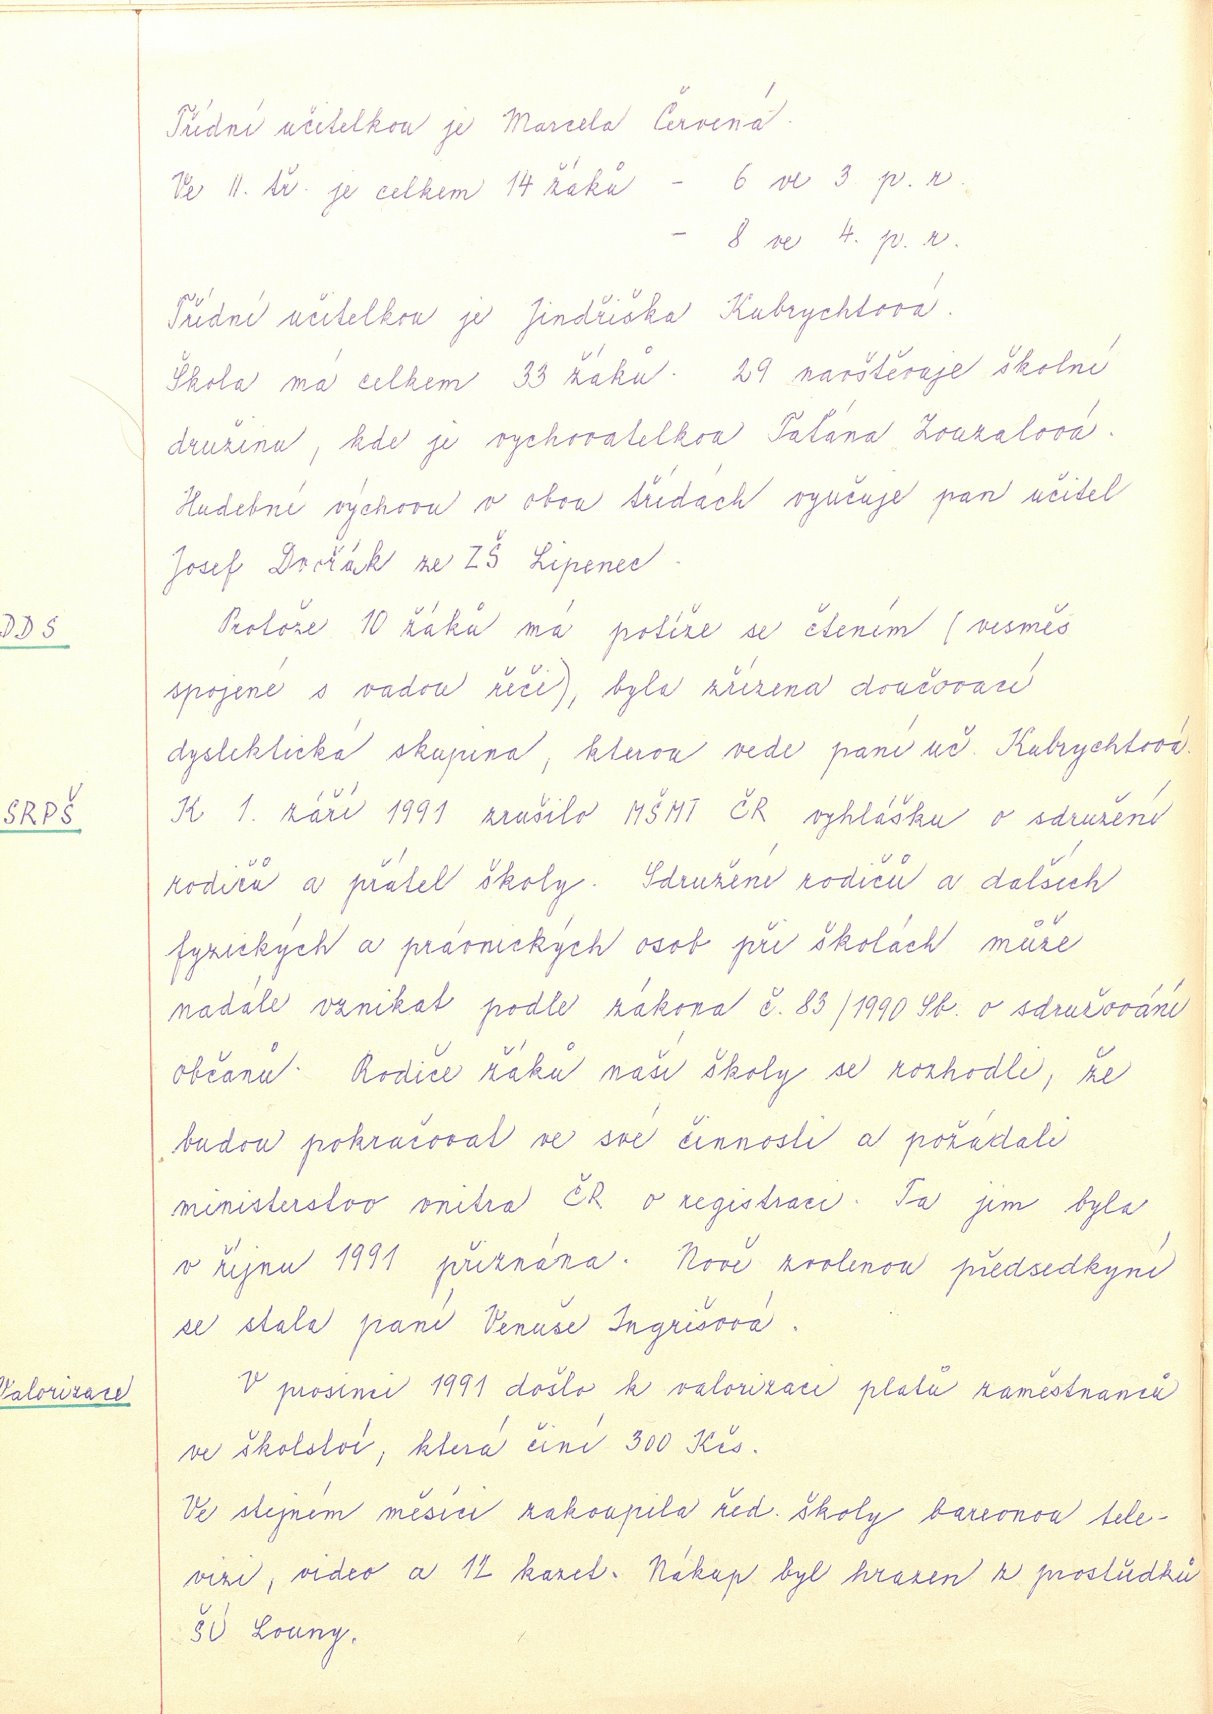 Třídní učitelkou je Marcela Červená.
Ve II. tř. je celkem 14 žáků - 6 ve 3. p. r.
- 8 ve 4. p. r.
Třídní učitelkou je Jindřiška Kubrychtová.
Škola má celkem 33 žáků. 29 navštěvuje školní
družinu, kde je vychovatelkou Taťána Zouzalová.
Hudební výchovu v obou třídách vyučuje pan učitel
Josef Dvořák ze ZŠ Lipenec.
DDS
Protože 10 žáků má potíže se čtením (vesměs
spojené s vadou řeči), byla zřízena doučovací
dyslektická skupina, kterou vede paní uč. Kubrychtová.
SRPŠ
K 1. září 1991 zrušilo MŠMT ČR vyhlášku o sdružení
rodičů a přátel školy. Sdružení rodičů a dalších
fyzických a právnických osob při školách může
nadále vznikat podle zákona č. 83/1990 Sb. o sdružování
občanů. Rodiče žáků naší školy se rozhodli, že
budou pokračovat ve své činnosti a požádali
ministerstvo vnitra ČR o registraci. Ta jim byla
v říjnu 1991 přiznána. Nově zvolenou předsedkyní
se stala paní Venuše Ingrišová.
Valorizace
V prosinci 1991 došlo k valorizaci platů zaměstnanců
ve školství, která činí 300 Kčs.
Ve stejném měsíci zakoupila řed. školy barevnou tele-
vizi, video a 12 kazet. Nákup byl hrazen z prostředků
ŠÚ Louny.